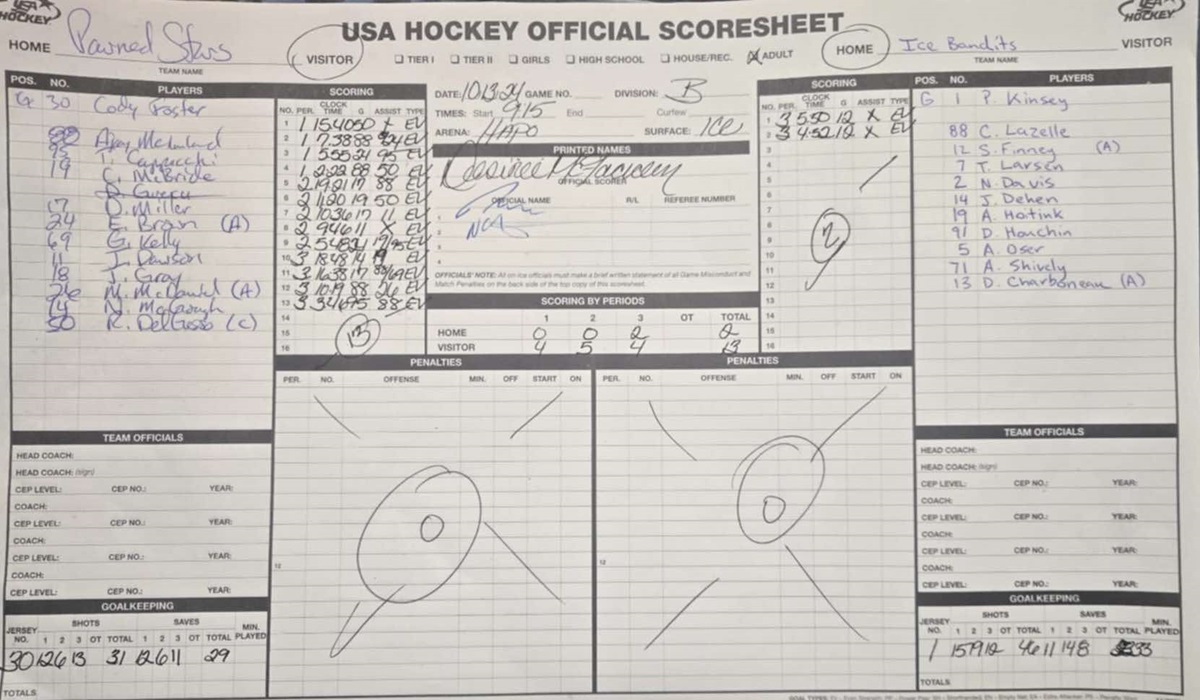 USA HOCKEY
USA HOCKEY OFFICIAL SCORESHEET
USA HOCKEY
HOME Pawned Stars VISITOR
TEAM NAME
☐ TIER I ☐ TIER II ☐ GIRLS ☐ HIGH SCHOOL ☐ HOUSE/REC. ☒ ADULT
HOME Ice Bandits VISITOR
TEAM NAME
POS. NO. PLAYERS
G 30 Cody Foster
C. McBride
17 D. Miller
24 E. Brown (A)
69 G. Kelly
11 J. Dawson
18 J. Gray
26 M. McDaniel (A)
14
50 R. DelGusso (C)
SCORING
NO. PER. CLOCK TIME G ASSIST TYPE
1 1 1540 50 X EV
2 1 738 88 24 EV
3 1 555 24 95 EV
4 1 222 88 50 EV
5 2 1921 17 88 EV
6 2 1120 19 50 EV
7 2 1036 17 11 EV
8 2 946 11 X EV
9 2 548 21 17/95 EV
10 3 1848 14 19 EV
11 3 1633 17 88/69 EV
12 3 1019 88 26 EV
13 3 346 95 88 EV
14
15
16
13
DATE: 10.13.24 GAME NO. DIVISION: B
TIMES: Start 9:15 End Curfew
ARENA: HAPO SURFACE: ICE
PRINTED NAMES
Desiree
OFFICIAL SCORER
OFFICIAL NAME R/L REFEREE NUMBER
OFFICIALS' NOTE: All on ice officials must make a brief written statement of all Game Misconduct and
Match Penalties on the back side of the top copy of this scoresheet.
SCORING BY PERIODS
1 2 3 OT TOTAL
HOME 0 0 2 2
VISITOR 4 5 4 13
SCORING
NO. PER. CLOCK TIME G ASSIST TYPE
1 3 550 12 X EV
2 3 452 12 X EV
3
4
5
6
7
8
9
10
11
12
13
14
15
16
2
POS. NO. PLAYERS
G 1 P. Kinsey
88 C. Lazelle
12 S. Finney (A)
7 T. Larsen
2 N. Davis
14 J. Dehen
19 A. Hoitink
91 D. Houchin
5 A. Oser
71 A. Shively
13 D. Charboneau (A)
PENALTIES
PER. NO. OFFENSE MIN. OFF START ON
0
12
PENALTIES
PER. NO. OFFENSE MIN. OFF START ON
0
12
TEAM OFFICIALS
HEAD COACH:
HEAD COACH: (sign)
CEP LEVEL: CEP NO.: YEAR:
COACH:
CEP LEVEL: CEP NO.: YEAR:
COACH:
CEP LEVEL: CEP NO.: YEAR:
COACH:
CEP LEVEL: CEP NO.: YEAR:
GOALKEEPING
SHOTS SAVES MIN.
JERSEY NO. 1 2 3 OT TOTAL 1 2 3 OT TOTAL PLAYED
30 12 6 13 31 12 6 11 29
TOTALS
TEAM OFFICIALS
HEAD COACH:
HEAD COACH: (sign)
CEP LEVEL: CEP NO.: YEAR:
COACH:
CEP LEVEL: CEP NO.: YEAR:
COACH:
CEP LEVEL: CEP NO.: YEAR:
COACH:
CEP LEVEL: CEP NO.: YEAR:
GOALKEEPING
SHOTS SAVES MIN.
JERSEY NO. 1 2 3 OT TOTAL 1 2 3 OT TOTAL PLAYED
1 15 19 12 46 11 14 8 33
TOTALS